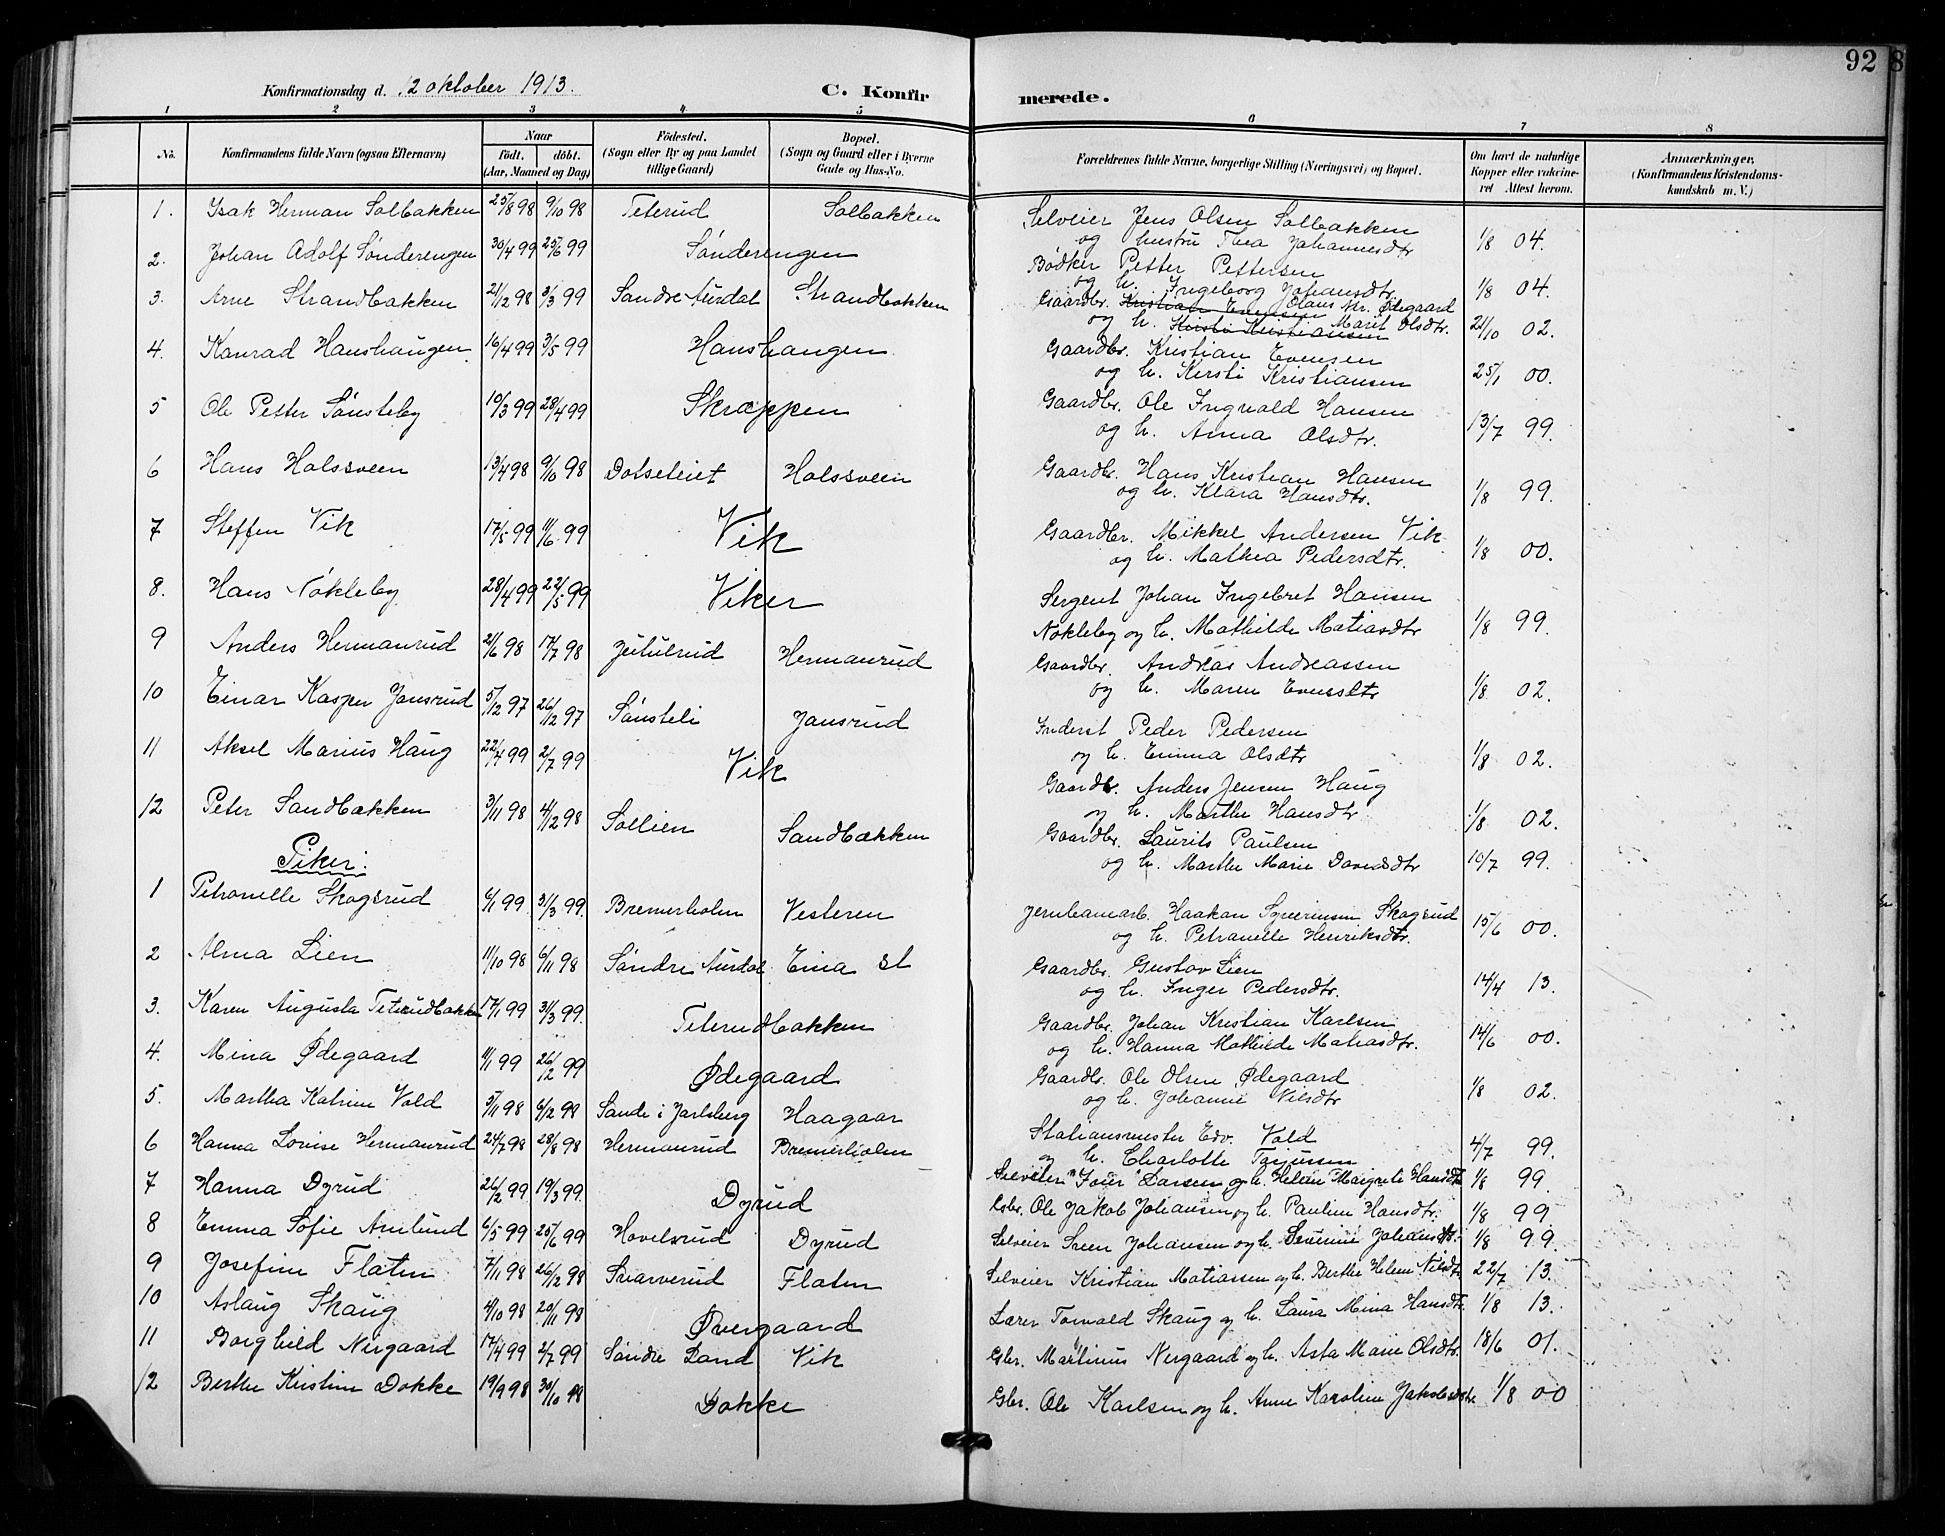 92 8
Konfirmationsdag d. 12 oktober 1913. C. Konfirmerede.
1 2 3 4. 5 6 7 8
No. Konfirmandens fulde Navn (ogsaa Efternavn) Naar födt. döbt. (Aar, Maaned og Dag) Födested. (Sogn eller By og paa Landet tillige Gaard) Bopæl. (Sogn og Gaard eller i Byerne Gade og Hus-No. Forældrenes fulde Navne, borgerlige Stilling (Næringsvei) og Bopæl. Om havt de naturlige Kopper eller vakcineret. Attest herom. Anmærkninger, (Konfirmandens Kristendomskundskab m. V.)
1. Isak Herman Solbakken 25/8 98 9/10 98 Teterud Solbakken Selveier Jens Olsen Solbakken
og hustru Thea Johannesdtr 1/8 04.
2. Johan Adolf Sönderengen 30/4 99 25/6 99 Sönderengen Bödker Petter Pettersen
og h. Ingeborg Johansdtr 1/8 04.
3. Arne Strandbakken 21/12 98 3/3 99 Söndre Aurdal Strandbakken Gaardbr. Kristian Evensen Olaus Kr. Ødegaard
og h. Kirsti Kristiansen Marit Olsdtr. 21/10 02.
4. Konrad Hanshaugen 16/4 99 3/5 99 Hanshaugen Gaardbr. Kristian Evensen
og h. Kersti Kristiansen 25/1 00.
5 Ole Petter Sönsteby 10/3 99 28/4 99 Skræppen Gaardbr. Ole Ingvald Hansen
og h. Anna Olsdtr. 13/7 99.
6 Hans Halssveen 13/4 98 9/10 98 Dotseteiet Halssveen Gaardbr. Hans Kristian Hansen
og h. Klara Hansdtr. 1/8 99.
7 Steffen Vik 17/5 99 11/6 99 Vik Gaardbr. Mikkel Andersen Vik
og h. Mathea Pedersdtr. 1/8 00.
8. Hans Nökleby 28/4 99 22/5 99 Viker Sergent Johan Ingebret Hansen
Nökleby og h. Mathilde Matiasdtr 1/8 99.
9 Anders Hermanrud 21/6 98 17/7 98 Jutulrud Hermanrud Gaardbr. Andreas Andreassen
og h. Maren Evensdtr 1/8 02.
10 Einar Kasper Jansrud 5/12 97 26/12 97 Sönsteli Jansrud Inderst Peder Pedersen
og h. Emma Olsdtr 1/8 02.
11 Aksel Marius Haug 22/4 99 2/7 99 Vik Gaardb. Anders Jensen Haug
og h. Marthe Hansdtr 1/8 02.
12 Peter Sandbækken 3/11 98 4/12 98 Sollien Sandbækken Gaardbr. Laurits Paulsen
og h. Marthe Marie Davidsdtr 10/7 99.
Piker:
1 Petronelle Skogsrud 6/1 99 31/3 99. Bremerholm Vesteren Jernbanearb. Haakan Syverinsen Skogsrud
og h. Petronelle Henriksdtr. 15/6 00.
2 Alma Lien 11/10 98 6/11 98 Söndre Aurdal Eina st Gaardbr. Gustav Lien
og h. Inger Pedersdtr. 14/4 13.
3. Karen Augusta Teterudbakken 17/1 99 31/3 99. Teterudbakken Gaardbr. Johan Kristian Karlsen
og h. Hanna Mathilde Matiasdtr. 14/6 00.
4. Mina Ødegaard 11/1 99 26/12 99 Ødegaard Gaardbr. Ole Olsen Ødegaard
og h. Johanne Nilsdtr 1/8 02.
5. Martha Katrine Vold 5/11 98 6/2 99 Sande i Jarlsberg Haagaar Stationsmester Edv. Vold
og h. Charlotte Torjussen 4/7 99.
6 Hanna Lovise Hermanrud 24/7 98 28/8 98 Hermanrud Bremerholm Selveier Iver Larsen og h. Helene Margrete Hansdtr 1/8 99.
7 Hanna Dyrud 26/2 99 19/3 99. Dyrud Gbr. Ole Jakob Johansen og h. Pauline Hansdtr. 1/8 99
8 Emma Sofie Amlund 6/5 99 25/6 99 Hovelsrud Dyrud Selveier Sven Johansen og h. Severine Johansdtr. 1/8 99.
9 Josefine Flaten 7/11 98 26/12 98 Svarverud Flaten Selveier Kristian Matiassen og h. Berthe Helene Nilsdtr 22/7 13.
10 Aslaug Skaug 4/10 98 20/11 98 Øvergaard Lærer Torvald Skaug og h. Laura Mina Hansdtr. 1/8 13.
11 Borghild Nergaard 17/4 99 2/7 99 Söndre Land Vik Gbr. Martinius Nergaard og h. Asta Marie Olsdtr. 18/6 01.
12 Berthe Kristine Dokke 19/9 98 30/10 98 Dokke Gbr. Ole Karlsen og h. Anne Karoline Jakobsdtr. 1/8 00